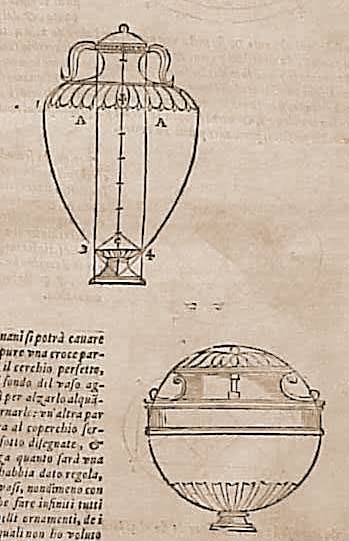 A A
3 4
mani si potrà cauare
pure vna croce par-
il cerchio perfetto,
fondo del vaso ag-
per alzarlo alquā-
rnarlo: vn'altra par
ra al coperchio ser-
sotto disegnate, &
ga quanto sarà vna
habbia dato regola,
vasi, nondimeno con
be fare infiniti tutti
ornamenti, de i
quali non ho voluto